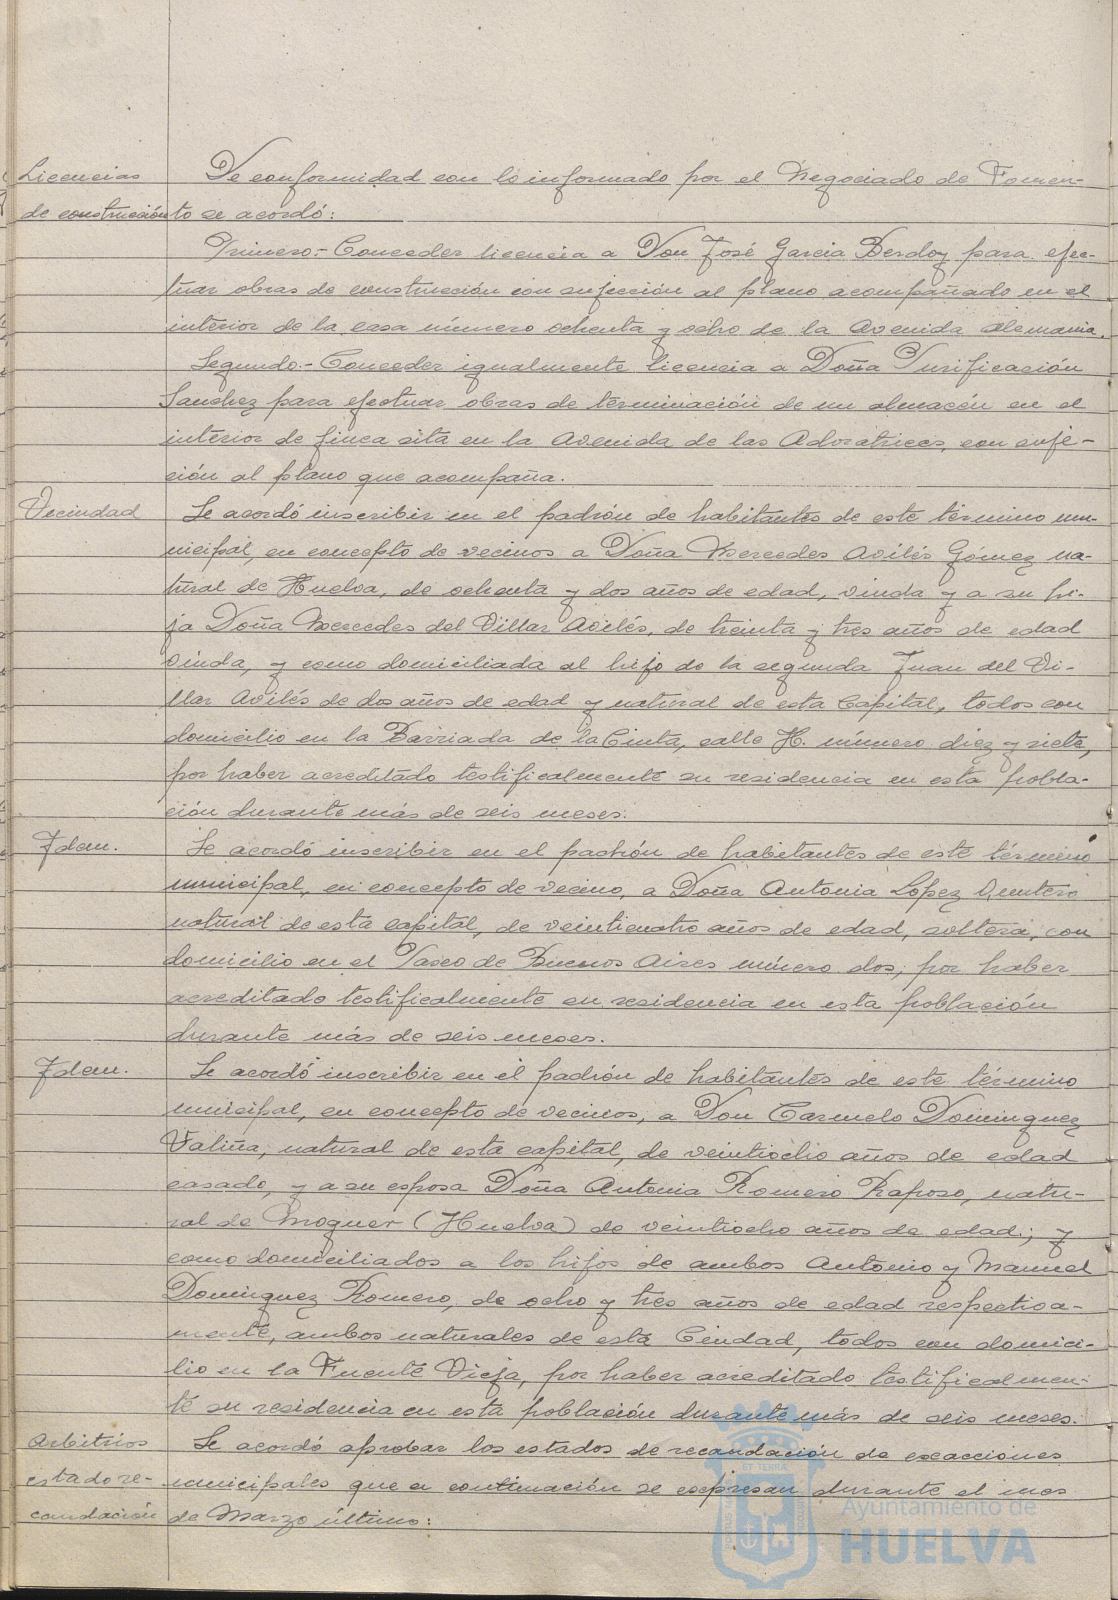 Licencias
de construcción
De conformidad con lo informado por el Negociado de Fomen-
to se acordó:
Primero.- Conceder licencia a Don José Garcia Berdoy para efec-
tuar obras de construcción con sujección al plano acompañado en el
interior de la casa número ochenta y ocho de la Avenida Alemania.
Segundo.- Conceder igualmente licencia a Doña Purificación
Sanchez para efectuar obras de terminación de un almacén en el
interior de finca sita en la Avenida de las Adoratrices, con suje-
ción al plano que acompaña.
Vecindad
Se acordó inscribir en el padrón de habitantes de este término mu-
nicipal, en concepto de vecinos a Doña Mercedes Avilés Gómez na-
tural de Huelva, de ochenta y dos años de edad, viuda y a su hi-
ja Doña Mercedes del Villar Avilés, de treinta y tres años de edad
viuda, y como domiciliada al hijo de la segunda Juan del Vi-
llar Avilés de dos años de edad y natural de esta Capital, todos con
domicilio en la Barriada de la Cinta, calle H. número diez y siete,
por haber acreditado testificalmente su residencia en esta pobla-
ción durante más de seis meses.
Idem.
Se acordó inscribir en el padrón de habitantes de este término
municipal, en concepto de vecino, a Doña Antonia López Quintero
natural de esta capital, de veinticuatro años de edad, soltera, con
domicilio en el Paseo de Buenos Aires número dos, por haber
acreditado testificalmente su residencia en esta población
durante más de seis meses.
Idem.
Se acordó inscribir en el padrón de habitantes de este término
municipal, en concepto de vecinos, a Don Carmelo Dominguez
Faliña, natural de esta capital, de veintiocho años de edad
casado, y a su esposa Doña Antonia Romero Raposo, natu-
ral de Moguer (Huelva) de veintiocho años de edad; y
como domiciliados a los hijos de ambos Antonio y Manuel
Dominguez Romero, de ocho y tres años de edad respectiva-
mente, ambos naturales de esta Ciudad, todos con domici-
lio en la Fuente Vieja, por haber acreditado testificalmen-
te su residencia en esta población durante más de seis meses.
Arbitrios
estado re-
caudación
Se acordó aprobar los estados de recaudación de exacciones
municipales que a continuación se expresan durante el mes
de Marzo último:
Ayuntamiento de
HUELVA